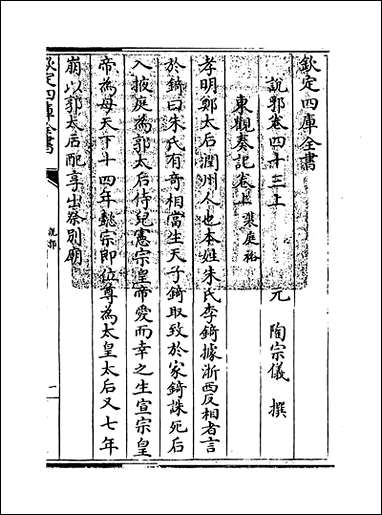 欽定四庫全書
說郛卷四十三上
元 陶宗儀 撰
東觀奏記卷上 裴庭裕
孝明鄭太后潤州人也本姓朱氏李錡據浙西反相者言
於錡曰朱氏有奇相當生天子錡取致於家錡誅死后
入掖庭為郭太后侍兒憲宗皇帝愛而幸之生宣宗皇
帝為母天下十四年懿宗即位尊為太皇太后又七年
崩以郭太后配享出祭別廟
欽定四庫全書
說郛
一